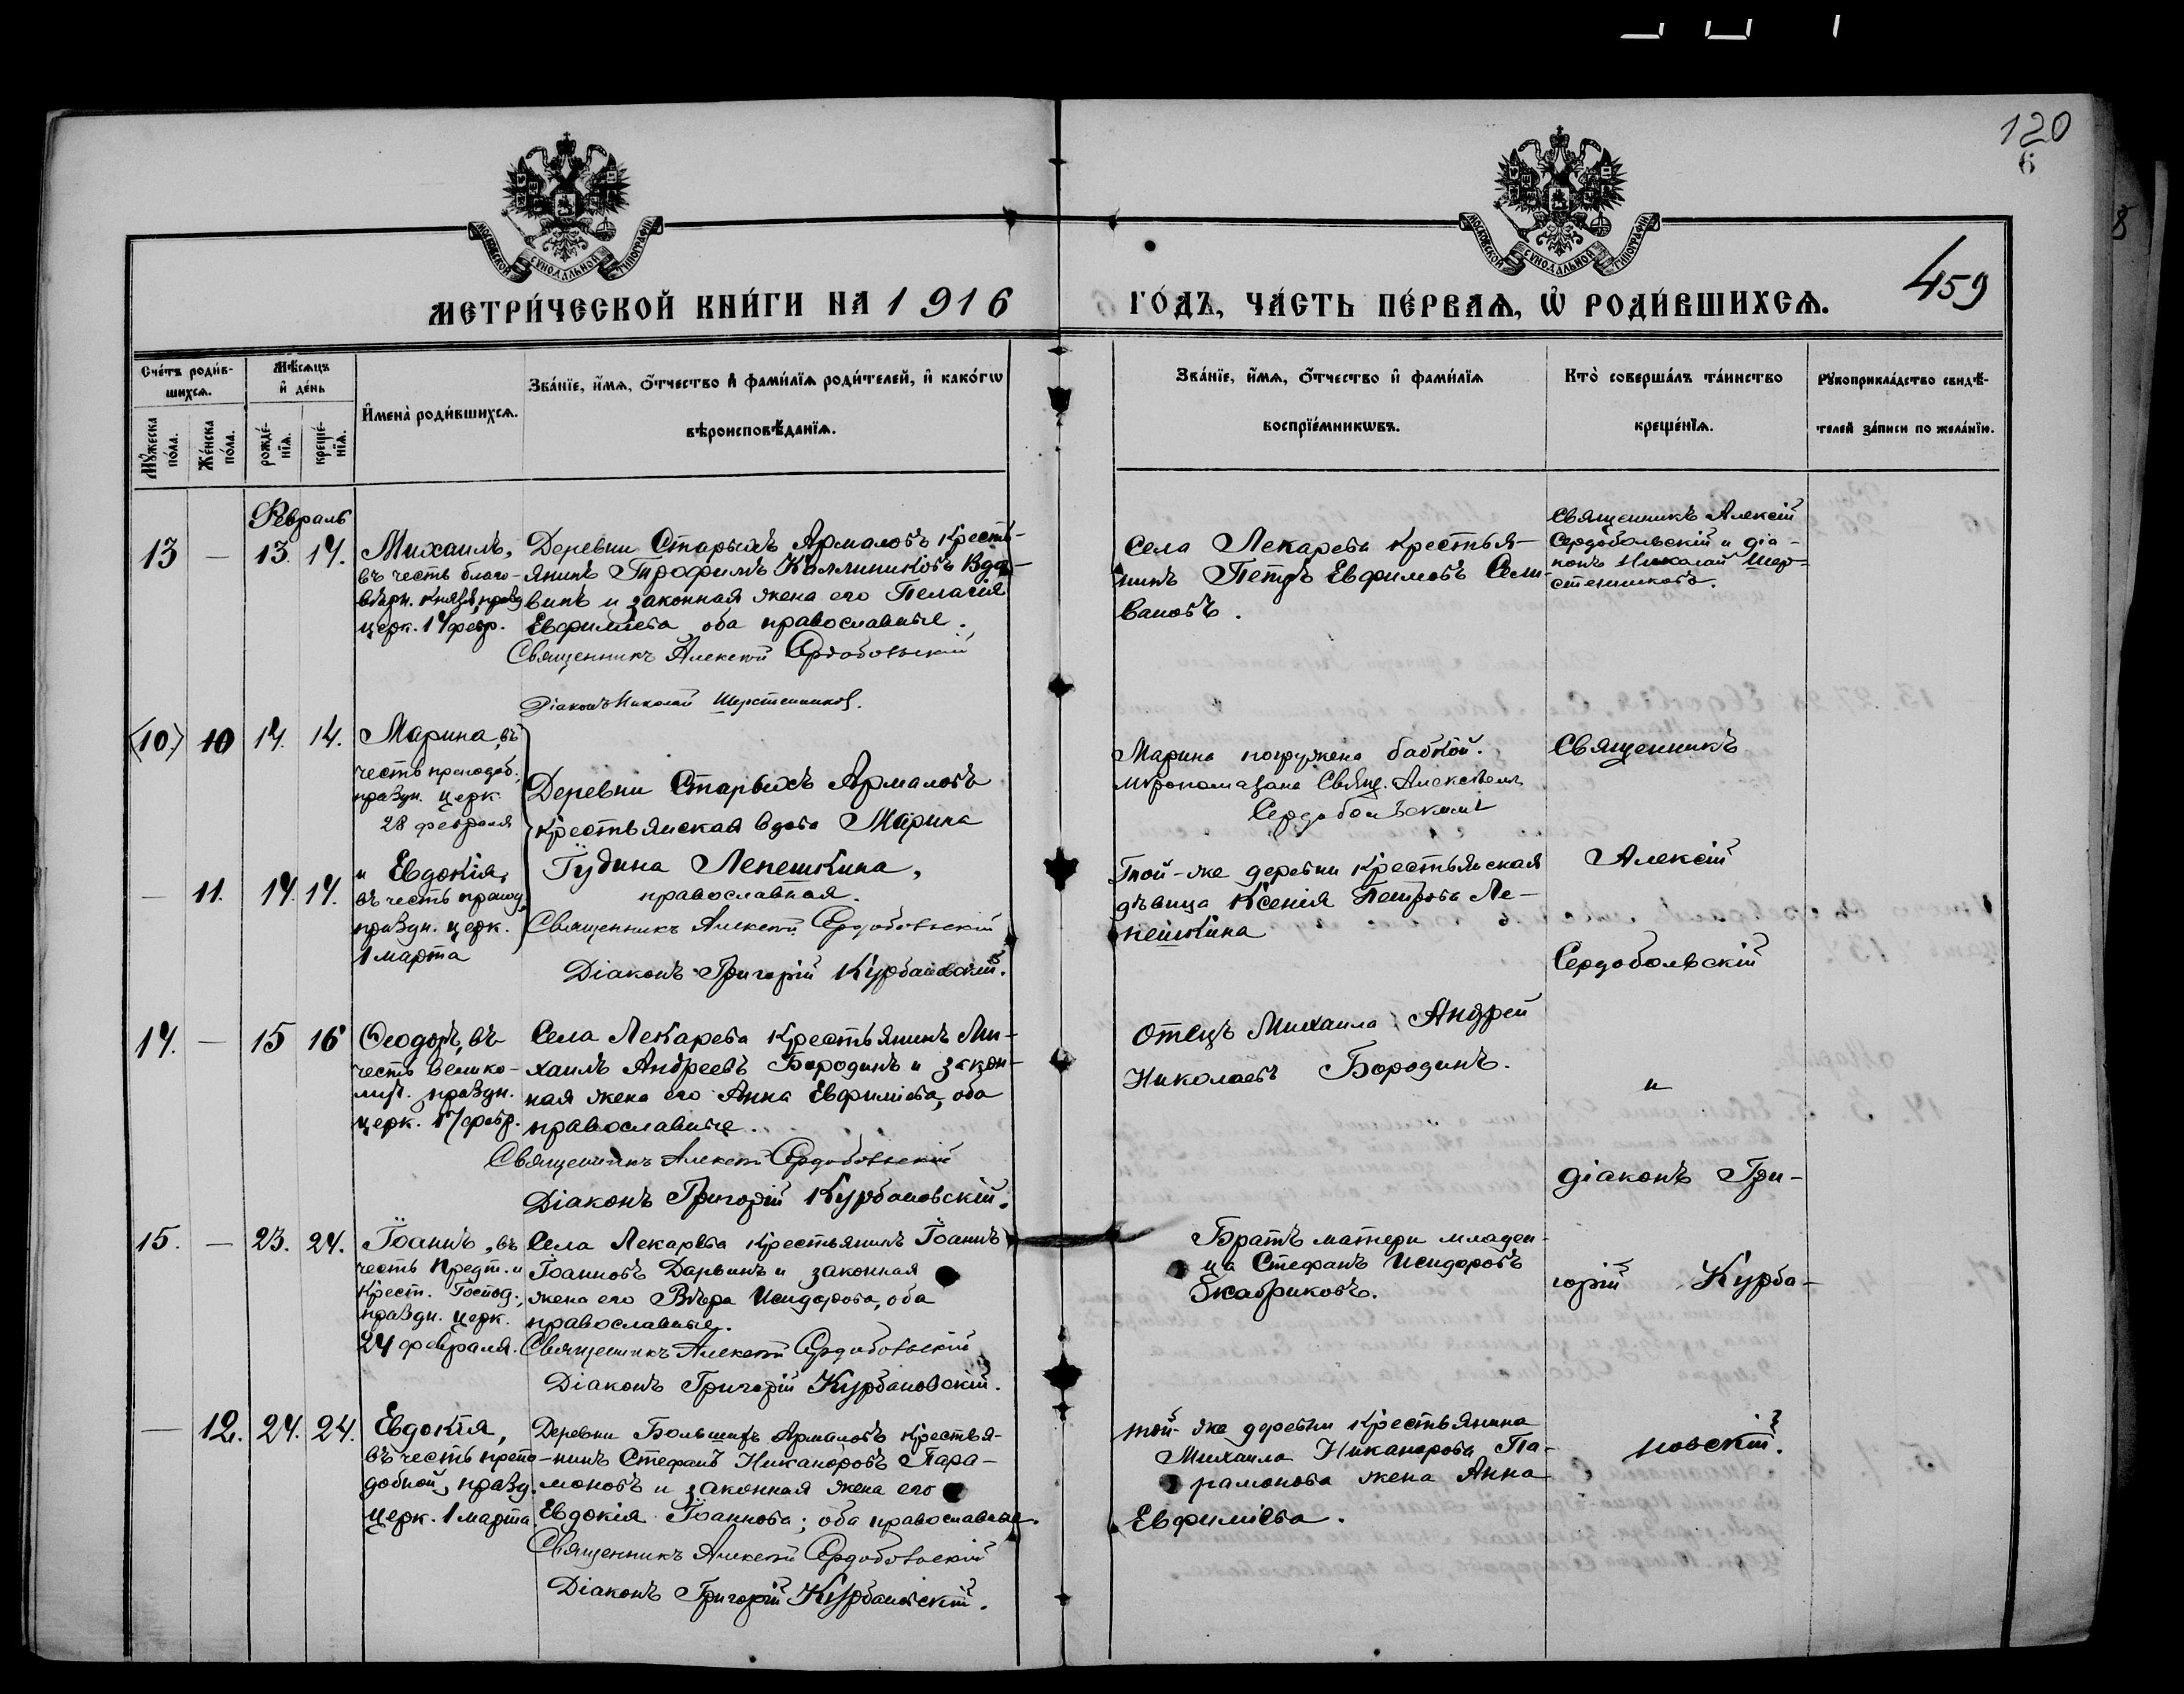 120
6
459
МОСКОВСКОЙ СѴНОДАЛЬНОЙ ТИПОГРАФІИ
МОСКОВСКОЙ СѴНОДАЛЬНОЙ ТИПОГРАФІИ
МЕТРИ́ЧЕСКОЙ КНИ́ГИ НА 1916
ГО́ДЪ, ЧА́СТЬ ПЕ́РВАѦ, Ѡ҆ РОДИ́ВШИХСѦ.
Сче́тъ роди́в-
шихсѧ.
Мѣ́сѧцъ
и҆ де́нь
Мꙋ́жеска
по́ла.
Же́нска
по́ла.
рожде́-
нїѧ.
креще́-
нїѧ.
И҆мена̀ роди́вшихсѧ.
Зва́нїе, и҆́мѧ, ѻ҆́тчество и҆ фами́лїѧ роди́телей, и҆ како́гѡ
вѣроисповѣ́данїѧ.
Зва́нїе, и҆́мѧ, ѻ҆́тчество и҆ фами́лїѧ
воспрїе́мникѡвъ.
Кто̀ соверша́лъ та́инство
креще́нїѧ.
Рꙋкоприкла́дство свидѣ́-
телей за́писи по жела́нїю.
Февраль
13 — 13. 14.
Михаилъ,
въ честь благо-
вѣрн. Князя, празд
церк. 14 февр.
Деревни Старыхъ Армаловъ крестья-
янинъ Трофимъ Каллиниковъ Вдо-
винъ и законная жена его Пелагія
Евфиміева, оба православные.
Священникъ Алексій Сердобольскій
Діаконъ Николай Шерстенников.
Села Лекарева крестья-
нинъ Петръ Евфимовъ Сели-
вановъ.
Священникъ Алексій
Сердобольскій и діа-
конъ Николай Шер-
стенниковъ.
(10) 10 14. 14.
Марина, въ
честь преподоб.
праздн. церк.
28 февраля
— 11. 14. 14.
и Евдокія,
въ честь препод.
праздн. церк.
1 марта
Деревни Старыхъ Армаловъ
крестьянская вдова Марина
Іудина Лепешкина,
православная.
Священникъ Алексій Сердобольскій
Діаконъ Григорій Курбановскій.
Марина погружена бабкой.
Мѵропомазана Свящ. Алексѣемъ
Сердобольскимъ
Той-же деревни крестьянская
дѣвица Ксенія Петрова Ле-
пешкина
Священникъ
Алексій
Сердобольскій
14. — 15 16
Ѳеодоръ, въ
честь велико-
муч. праздн.
церк. 17 февр.
Села Лекарева крестьянинъ Ми-
хаилъ Андреевъ Бородинъ и закон-
ная жена его Анна Евфиміева, оба
православные.
Священникъ Алексій Сердобольскій
Діаконъ Григорій Курбановскій.
Отецъ Михаила: Андрей
Николаевъ Бородинъ.
и
діаконъ Гри-
15. — 23. 24.
Іоаннъ, въ
честь Предт. и
Крест. Господ.,
праздн. церк.
24 февраля.
Села Лекарева крестьянинъ Іоаннъ
Іоанновъ Дарвинъ и законная
жена его Вѣра Исидорова, оба
православные.
Священникъ Алексій Сердобольскій
Діаконъ Григорій Курбановскій.
Братъ матери младен-
ца Стефанъ Исидоровъ
горій Курба-
— 12. 24. 24.
Евдокія,
въ честь препо-
добной, празд.
церк. 1 марта.
Деревни Большихъ Армаловъ крестья-
нинъ Стефанъ Никаноровъ Пара-
моновъ и законная жена его
Евдокія Іоаннова; оба православные.
Священникъ Алексій Сердобольскій
Діаконъ Григорій Курбановскій.
той-же деревни крестьянина
Михаила Никанорова Па-
рамонова жена Анна
Евфиміева.
новскій.